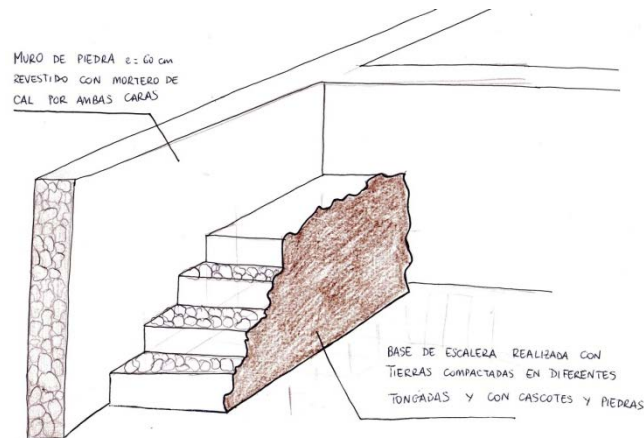 MURO DE PIEDRA e= 60 cm
REVESTIDO CON MORTERO DE
CAL POR AMBAS CARAS
BASE DE ESCALERA REALIZADA CON
TIERRAS COMPACTADAS EN DIFERENTES
TONGADAS Y CON CASCOTES Y PIEDRAS